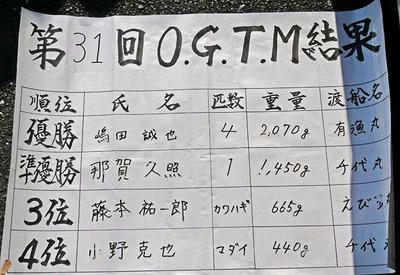 第31回 O.G.T.M結果
順位 氏名 匹数 重量 渡船名
優勝 嶋田誠也 4 2,070g 有漁丸
準優勝 那賀久照 1 1,450g 千代丸
3位 藤本祐一郎 カワハギ 665g えび
4位 小野克也 マダイ 440g 千代